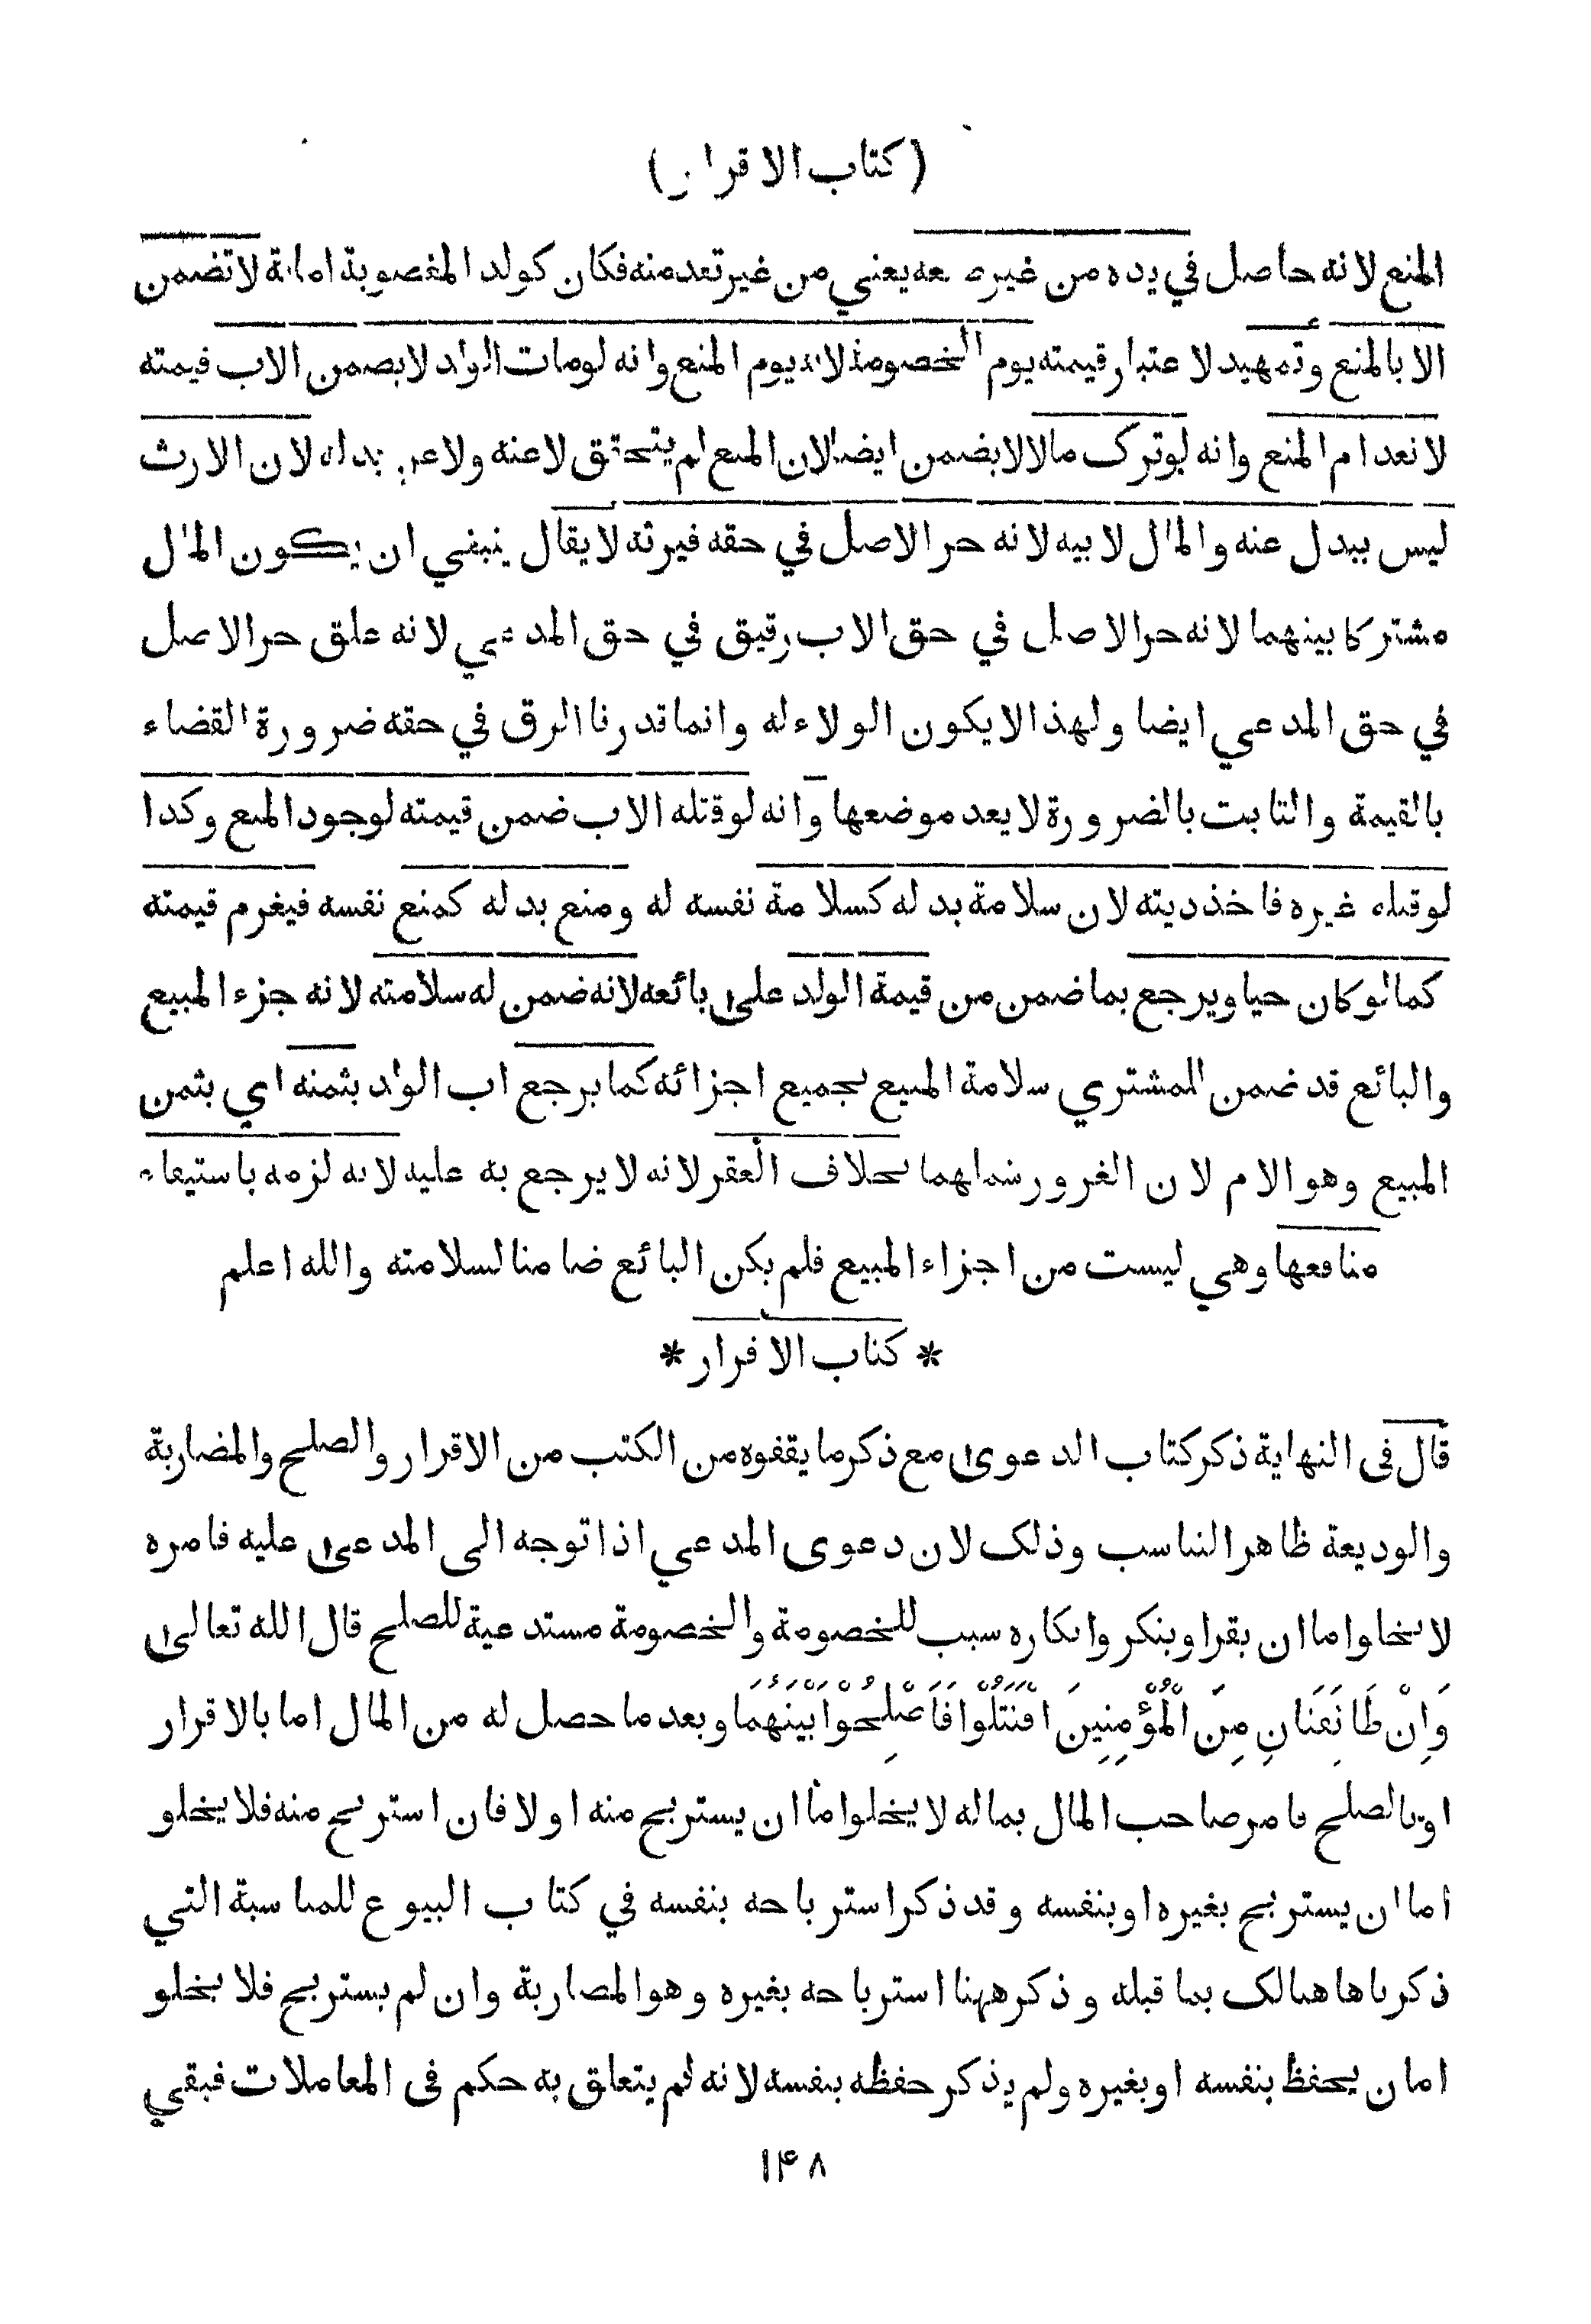 (كتاب الاقرار)
المنع لانه حاصل في يده من غير صنعه يعني من غير تعد منه فكان كولد المغصوبة امانة لا تضمن
الا بالمنع وتمهيد لاعتبار قيمته يوم الخصومة لانه يوم المنع وانه لو مات الولد لا يضمن الاب قيمته
لانعدام المنع وانه لو ترك مالا لا يضمن ايضا لان المنع لم يتحقق لا عنه ولا عن بدله لان الارث
ليس ببدل عنه والمال لابيه لانه حر الاصل في حقه فيرثه لا يقال ينبغي ان يكون المال
مشتركا بينهما لانه حر الاصل في حق الاب رقيق في حق المدعي لانه علق حر الاصل
في حق المدعي ايضا ولهذا لا يكون الولاء له وانما قدرنا الرق في حقه ضرورة القضاء
بالقيمة والثابت بالضرورة لا يعد موضعها وانه لو قتله الاب ضمن قيمته لوجود المنع وكذا
لو قتله غيره فاخذ ديته لان سلامة بدله كسلامة نفسه له ومنع بدله كمنع نفسه فيغرم قيمته
كما لو كان حيا ويرجع بما ضمن من قيمة الولد على بائعه لانه ضمن له سلامته لانه جزء المبيع
والبائع قد ضمن للمشتري سلامة المبيع بجميع اجزائه كما يرجع اب الولد بثمنه اي بثمن
المبيع وهو الام لان الغرور شملهما بخلاف العقر لانه لا يرجع به عليه لانه لزمه باستيفاء
منافعها وهي ليست من اجزاء المبيع فلم يكن البائع ضامنا لسلامته والله اعلم
* كتاب الاقرار *
قال في النهاية ذكر كتاب الدعوى مع ذكر ما يقفوه من الكتب من الاقرار والصلح والمضاربة
والوديعة ظاهر التناسب وذلك لان دعوى المدعي اذا توجه الى المدعى عليه فامره
لا يخلو اما ان يقر او ينكر وانكاره سبب للخصومة والخصومة مستدعية للصلح قال الله تعالى
وَاِنْ طَائِفَتَانِ مِنَ الْمُؤْمِنِينَ اقْتَتَلُوْا فَاَصْلِحُوْا بَيْنَهُمَا وبعد ما حصل له من المال اما بالاقرار
او بالصلح فامر صاحب المال بماله لا يخلو اما ان يستربح منه او لا فان استربح منه فلا يخلو
اما ان يستربح بغيره او بنفسه وقد ذكر استرباحه بنفسه في كتاب البيوع للمناسبة التي
ذكرناها هنالك بما قبله وذكر ههنا استرباحه بغيره وهو المضاربة وان لم يستربح فلا يخلو
اما ن يحفظ بنفسه او بغيره ولم يذكر حفظه بنفسه لانه لم يتعلق به حكم في المعاملات فبقي
۱۴۸